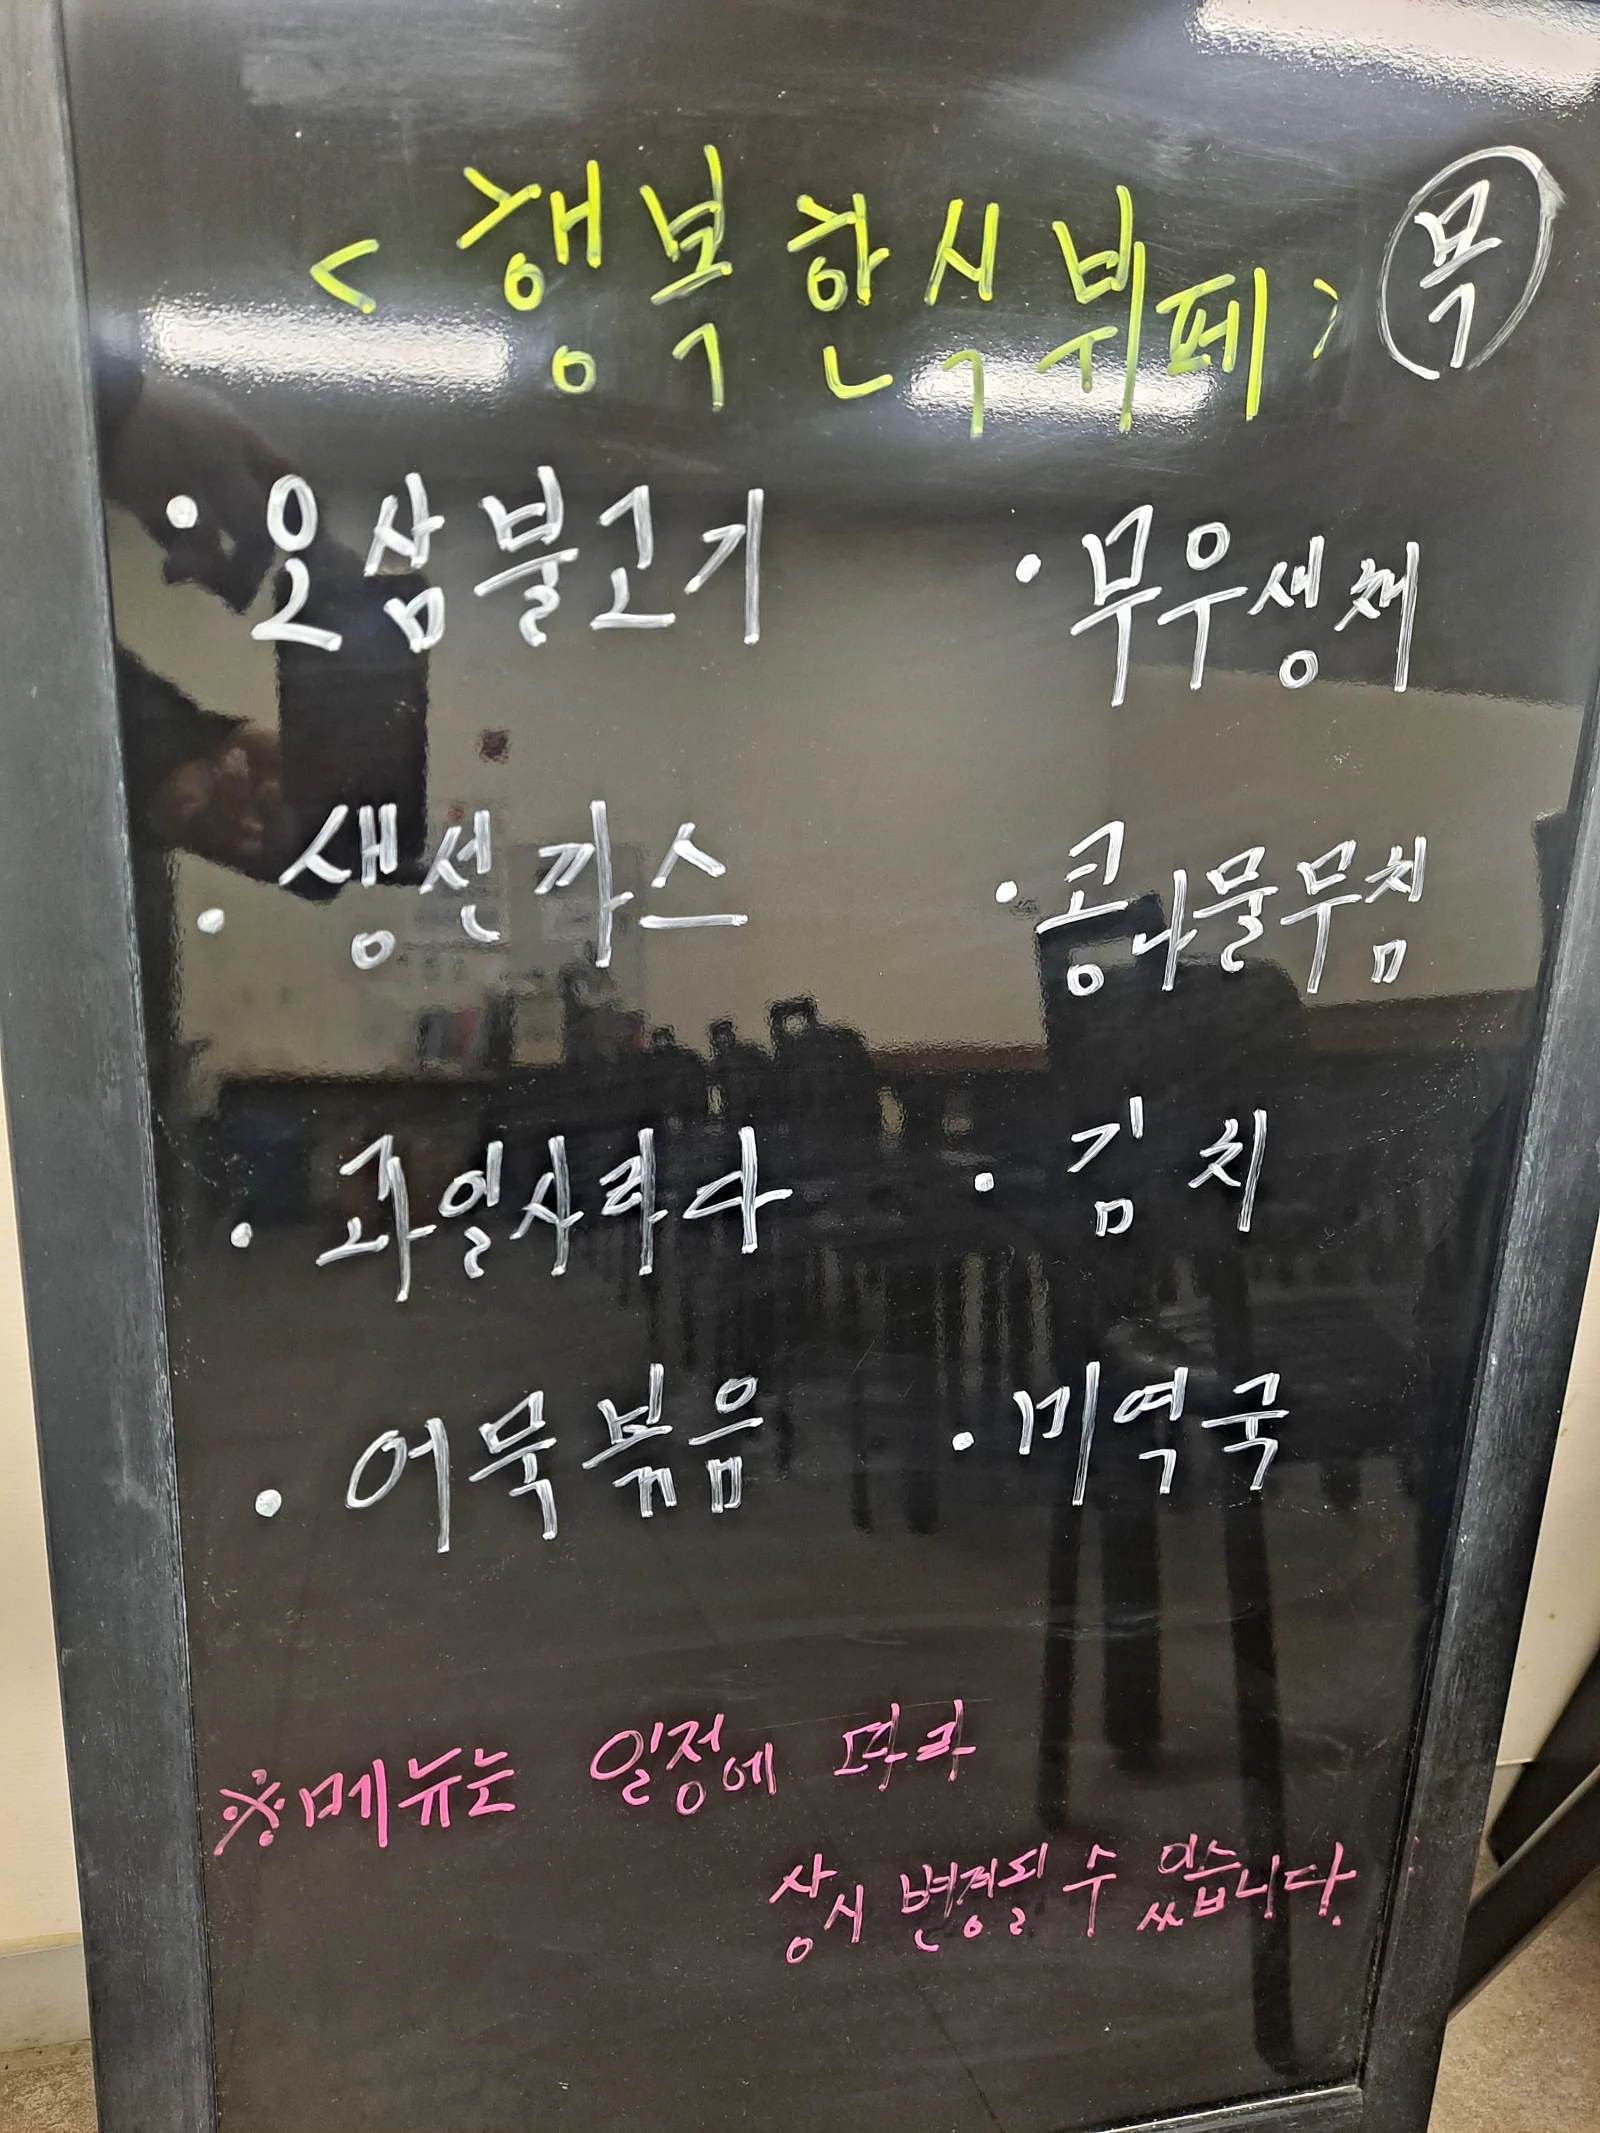 <행복한식뷔페> 목
• 오삼불고기
• 생선까스
• 과일사라다
• 어묵볶음
• 무우생채
• 콩나물무침
• 김치
• 미역국
※메뉴는 일정에 따라
상시 변경될 수 있습니다.